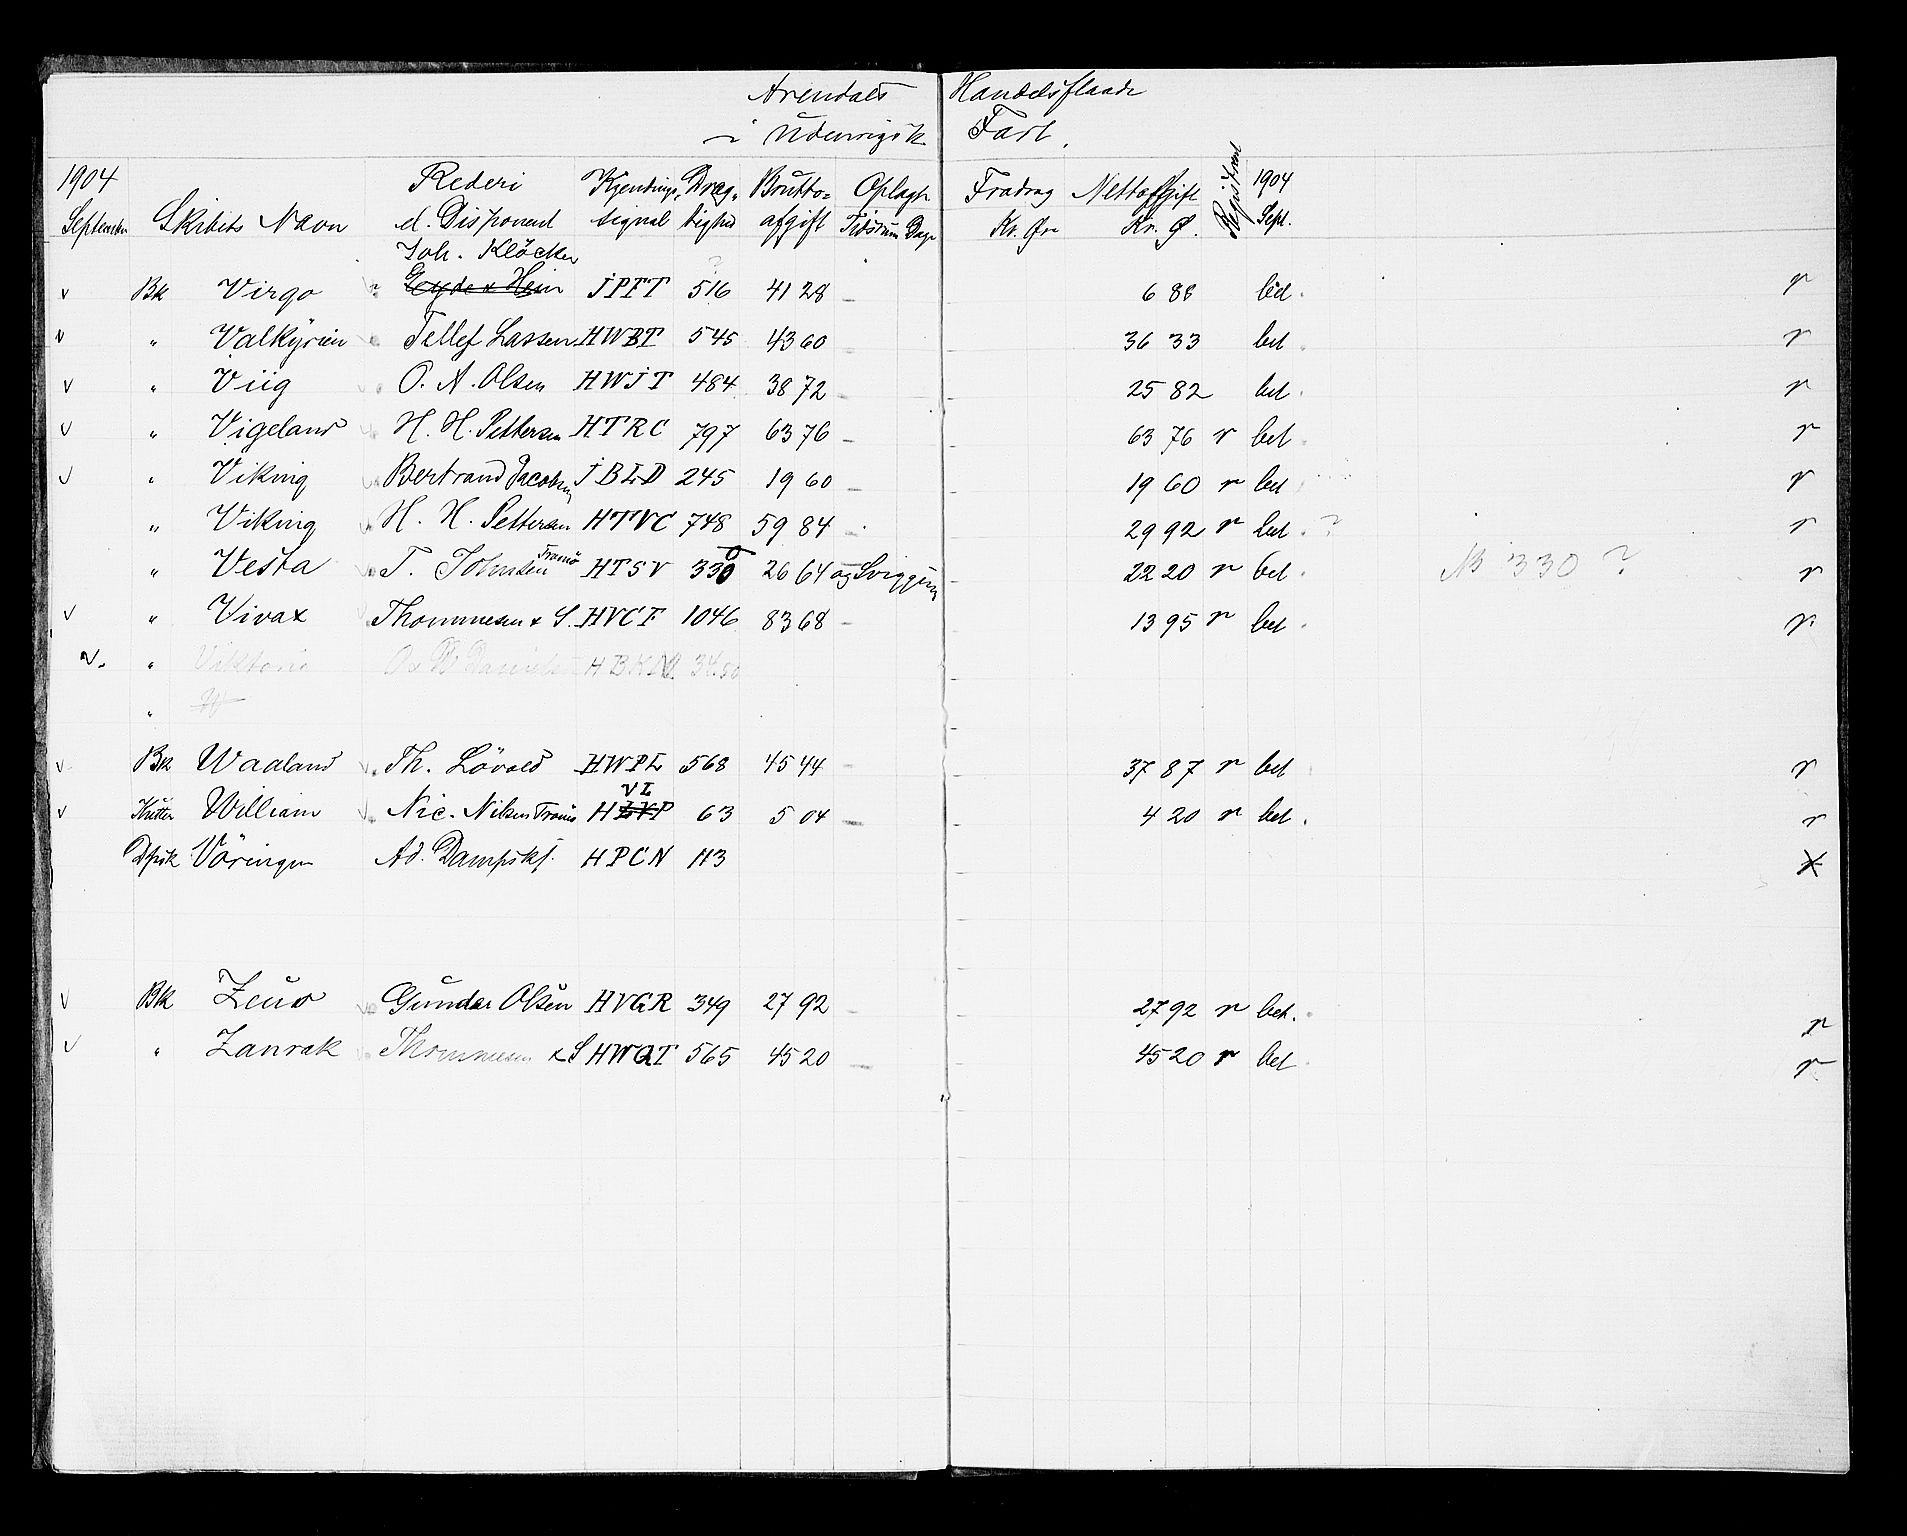 Arendals Handelsflaade
i Udenrigsk Fart.
1904 Rederi Kjendings- Dræg- Brutto- Oplagt Fradrag Nettoafgift Registreret 1904
September Skibets Navn el. Disponent signal tighed afgift Tidsrum Dage Kr. Øre Kr. Ø. Sept.
Joh. Klöcker
v Bk Virgo Eyde & Hein JPFT 516 41 28 - 6 88 bet. r
v " Valkyrien Tellef Lassen HWBT 545 43 60 36 33 bet r
v " Viig O. A. Olsen HWJT 484 38 72 - 25 82 bet. r
v " Vigeland H. H. Pettersen HTRC 797 63 76 - 63 76 r bet r
v " Viking Bertrand Jacobsen JBLD 245 19 60 - 19 60 r bet r
" Viking H. H. Pettersen HTVC 748 59 84 - 29 92 r bet. ? r
" Vesta T. Johnsen Tromö HTSV 330 0 26 64 og Sviggum 22 20 r bet. N 330 ? r
v " Vivax Thommesen & S. HVCF 1046 83 68 - 13 95 r bet r
v. " Viktoria O. B. Danielsen HBKN 34.50
" W
v Bk Waaland Th. Lövold HWPL 568 45 44 37 87 r bet r
VL
v Kutter William Nic. Nilsen Tromö HLVP 63 5 04 - 4 20 r bet. r
Dpsk Vöringen Ad. Dampskf. HPCN 113 r
v Bk Zeus Gundar Olsen HVGR 349 27 92 27 92 r bet. r
v " Zanrak Thommesen & S HWQT 565 45 20 - 45 20 r bet r